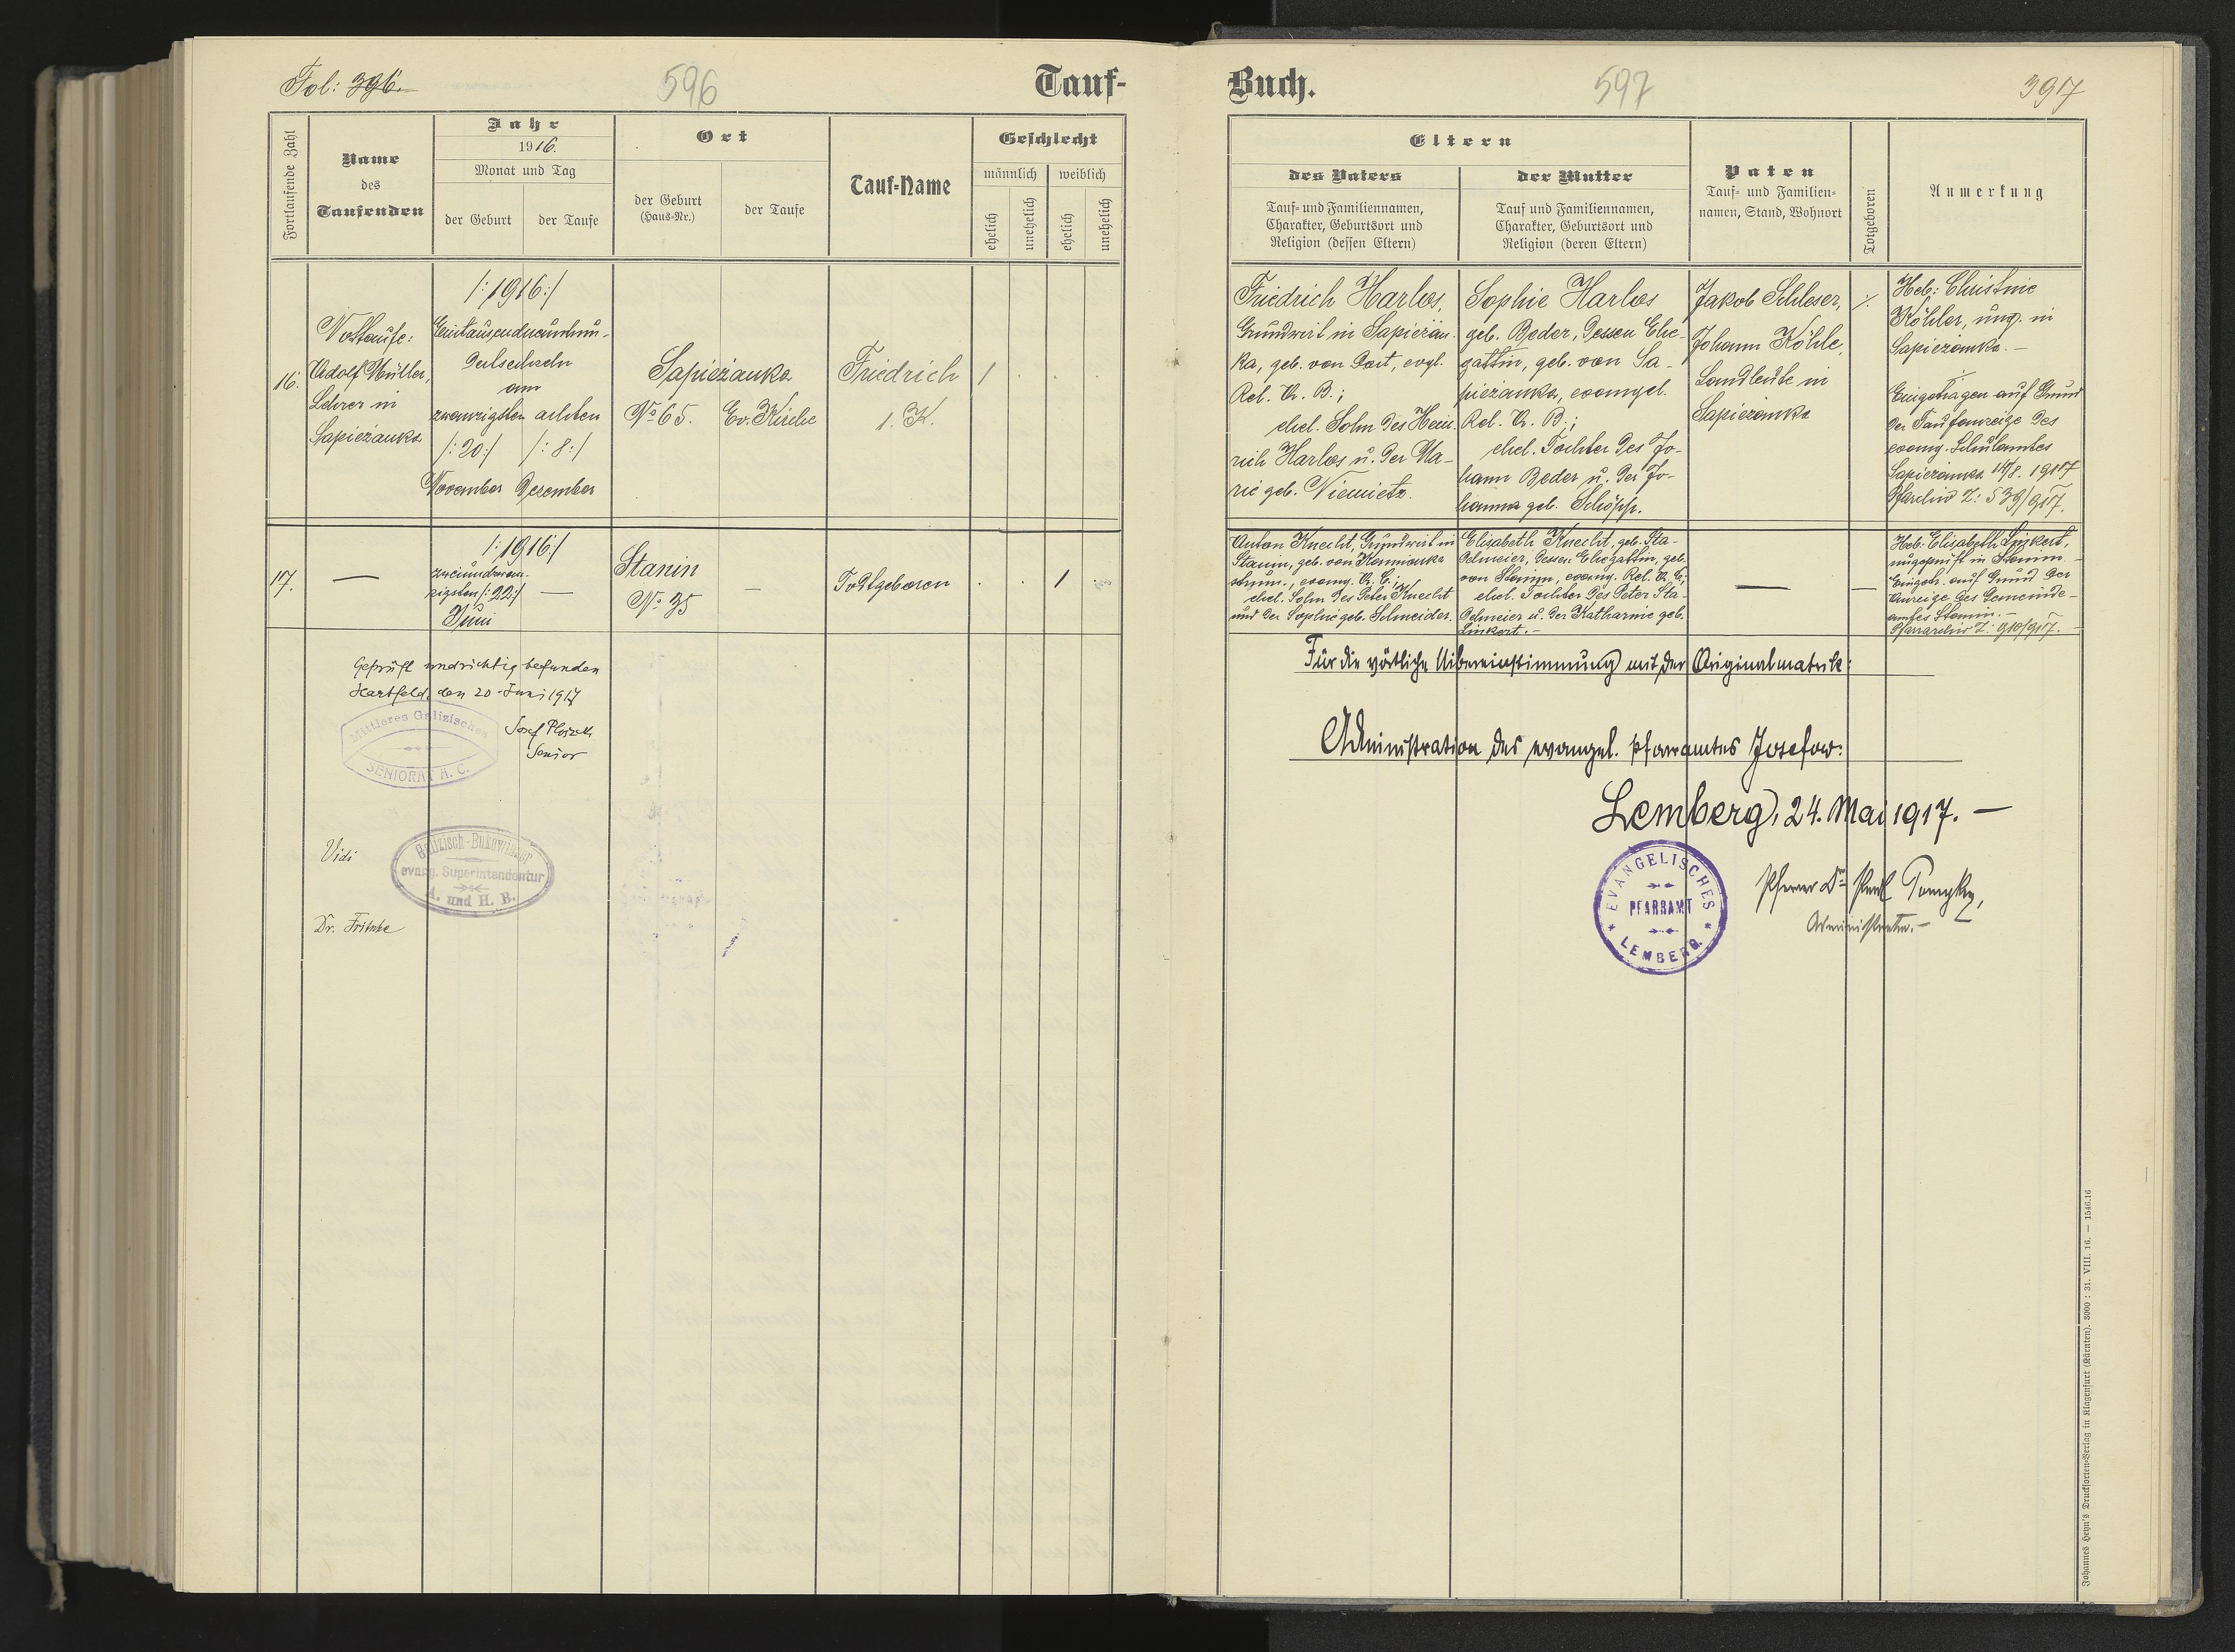 Fol: 396.
596
Tauf-
Fortlaufende Zahl
Name
des
Taufenden
Jahr
1916.
Monat und Tag
der Geburt
der Taufe
Ort
der Geburt
(Haus-Nr.)
der Taufe
Tauf-Name
Geschlecht
männlich
weiblich
ehelich
unehelich
ehelich
unehelich
16.
Nottaufe:
Adolf Müller,
Lehrer in
Sapieżanka
/:1916:/
Eintausendneunhun-
dertsechzehn
am
zwanzigsten achten
/:20:/ /:8:/
November Dezember
Sapieżanka
No 65.
Ev. Kirche
Friedrich
1. K.
1
17.
—
/:1916:/
zweiundzwan-
zigsten /:22:/
Juni
—
Stanin
No 35
—
Todtgeboren
1
Geprüft und richtig befunden
Hartfeld, den 20. Juni 1917
Josef
Senior
Mittleres Galizisches
SENIORAT A. C.
Vidi
Galizisch-Bukowiner
evang. Superintendentur
A. und H. B.
Dr. Fritsche
Buch.
597
397
Eltern
des Vaters
Tauf- und Familiennamen,
Charakter, Geburtsort und
Religion (dessen Eltern)
der Mutter
Tauf und Familiennamen,
Charakter, Geburtsort und
Religion (deren Eltern)
Paten
Tauf- und Familien-
namen, Stand, Wohnort
Totgeboren
Anmerkung
Friedrich Harlos,
Grundwirt in Sapiezan-
ka, geb. von Dort, evgl.
Rel. A. B.;
ehel. Sohn des Hein-
rich Harlos u. der Ma-
rie geb. Niemietz.
Sophie Harlos
geb. Beder, dessen Ehe-
gattin, geb. von Sa-
piezanka, evangel.
Rel. A. B.;
ehel. Tochter des Jo-
hann Beder u. der Jo-
hanna geb. Schöpp.
Jakob Schleser,
Johann Köhle,
Landleute in
Sapiezanka
Heb: Christine
Köhler, ung. in
Sapiezanka. —
Eingetragen auf Grund
der Taufanzeige des
evang. Schulamtes
Sapiezanka 14/8. 1917
Pfarchiv Z: 539/917.
Anton Knecht, Grundwirt in
Stanin, geb. von
evang. A. C.;
ehel. Sohn des Peter Knecht
und der Sophie geb. Schneider.
Elisabeth Knecht, geb. Sta-
delmeier, dessen Ehegattin, geb.
von Stanin, evang. Rel. A. C.;
ehel. Tochter des Peter Sta-
delmeier u. der Katharine geb.
Linkert. —
—
—
Heb: Elisabeth Linkert,
ungeprüft in Stanin. —
Eingetr. auf Grund der
Anzeige des Gemeinde-
amtes Stanin. —
Pfarrarchiv Z: 910/917. —
Für die wörtliche Uibereinstimmung mit der Originalmatrik:
Administration des evangel. Pfarramtes Josefow:
Lemberg, 24. Mai 1917. —
EVANGELISCHES
PFARRAMT
LEMBERG
Pfarrer Dr
Administrator. —
Johannes Heyn's Drucksorten-Verlag in Klagenfurt (Kärnten). 3000 : 31. VIII. 16. — 1546.16